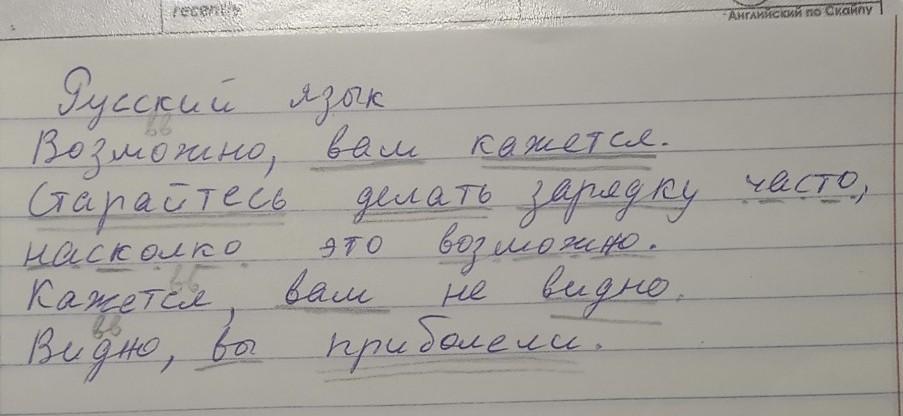 recently
Английский по Скайпу
Русский язык
вв
Возможно, вам кажется.
Старайтесь делать зарядку часто,
насколко это возможно.
вв
Кажется, вам не видно.
вв
Видно, вы приболели.